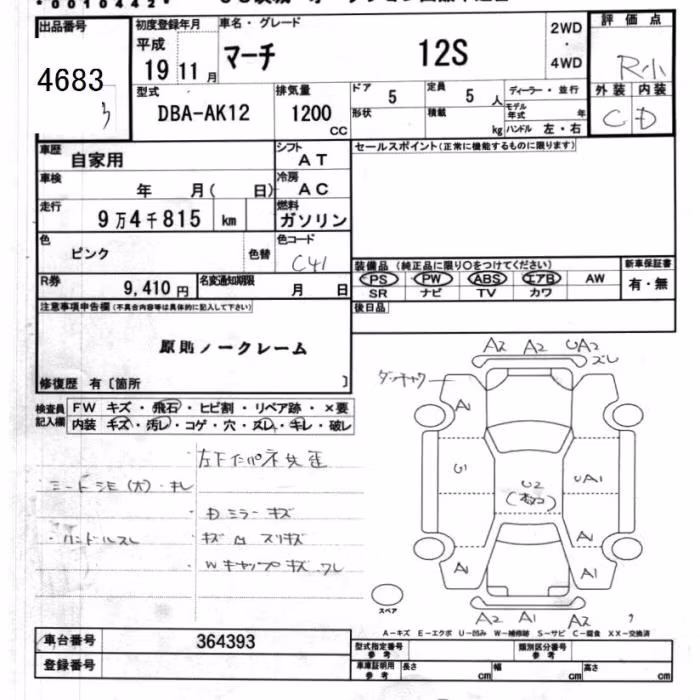 *0010442*
出品番号 初度登録年月 車名・グレード 2WD・4WD 評価点
4683 平成 19 11月 マーチ 12S R小
3
型式 DBA-AK12 排気量 1200 CC ドア 5 定員 5人 ディーラー・並行 外装 内装
形状 積載 kg モデル年式 年 C D
ハンドル 左・右
車歴 自家用 シフト AT セールスポイント(正常に機能するものに限ります)
車検 年 月( 日) 冷房 AC
走行 9万4千815 km 燃料 ガソリン
色 ピンク 色替 色コード C41
装備品 (純正品に限り○をつけてください) 新車保証書
R券 9,410円 名変通知期限 月 日 PS PW ABS エアB AW 有・無
SR ナビ TV カワ
注意事項申告欄(不具合内容等は具体的に記入して下さい) 後日品
原則ノークレーム
修復歴 有〔箇所 〕
A2 A2 UA2 ズレ
検査員記入欄 FW キズ・飛石・ヒビ割・リペア跡・×要
内装 キズ・汚レ・コゲ・穴・スレ・キレ・破レ
A1
U1 U2 UA1
シートシミ(大)・キレ
内ミラーキズ
ハンドルスレ キズ 凹 スリキズ
Wキャップキズ ワレ
A1 A1 A1
スペア
A2 A1 A2
A-キズ E-エクボ U-凹み W-補修跡 S-サビ C-腐食 XX-交換済
車台番号 364393 型式指定番号 参考 類別区分番号 参考
登録番号 車庫証明用 参考 長さ cm 幅 cm 高さ cm